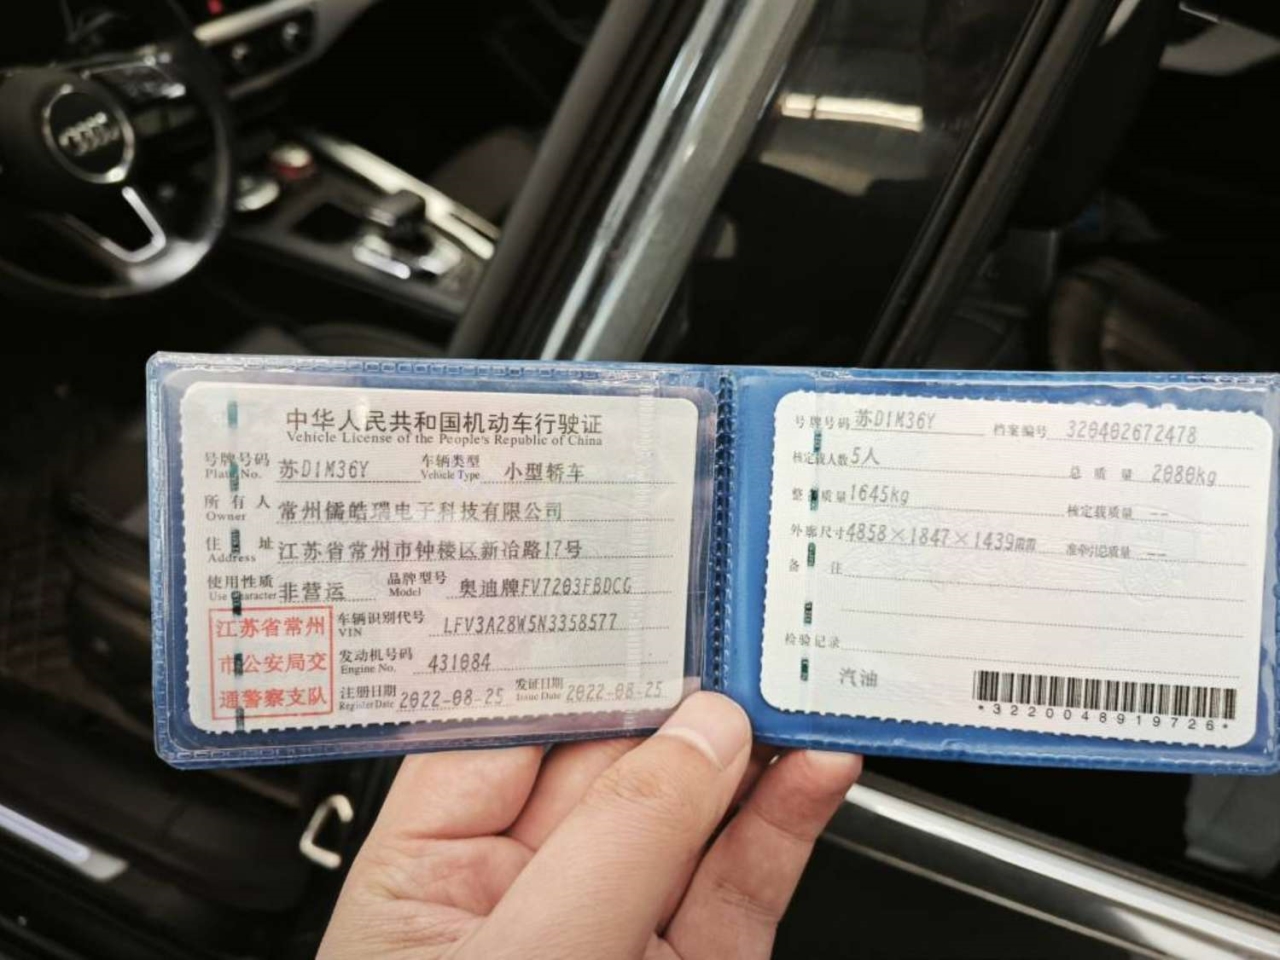 中华人民共和国机动车行驶证
Vehicle License of the People's Republic of China
号牌号码 苏D1M36Y 车辆类型 小型轿车
Plate No. Vehicle Type
所有人 常州儒皓瑞电子科技有限公司
Owner
住址 江苏省常州市钟楼区新冶路17号
Address
使用性质 非营运 品牌型号 奥迪牌FV7203FBDCG
Use Character Model
江苏省常州
市公安局交
通警察支队
车辆识别代号 LFV3A28W5N3358577
VIN
发动机号码 431084
Engine No.
注册日期 2022-08-25 发证日期 2022-08-25
Register Date Issue Date
号牌号码 苏D1M36Y 档案编号 320402672478
核定载人数 5人 总质量 2080kg
整备质量 1645kg 核定载质量 --
外廓尺寸 4858×1847×1439mm 准牵引总质量 --
备注
检验记录
汽油
*3220048919726*